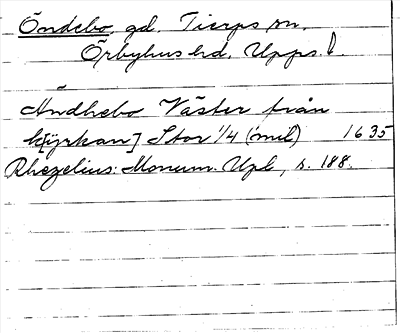 Öndebo gd. Tierps sn.
Örbyhus hd. Upps. l.
Åndhebo Väster från
k[yrkan] Stor 1/4 (mil) 1635
Rhezelius: Monum. Upl., s. 188.